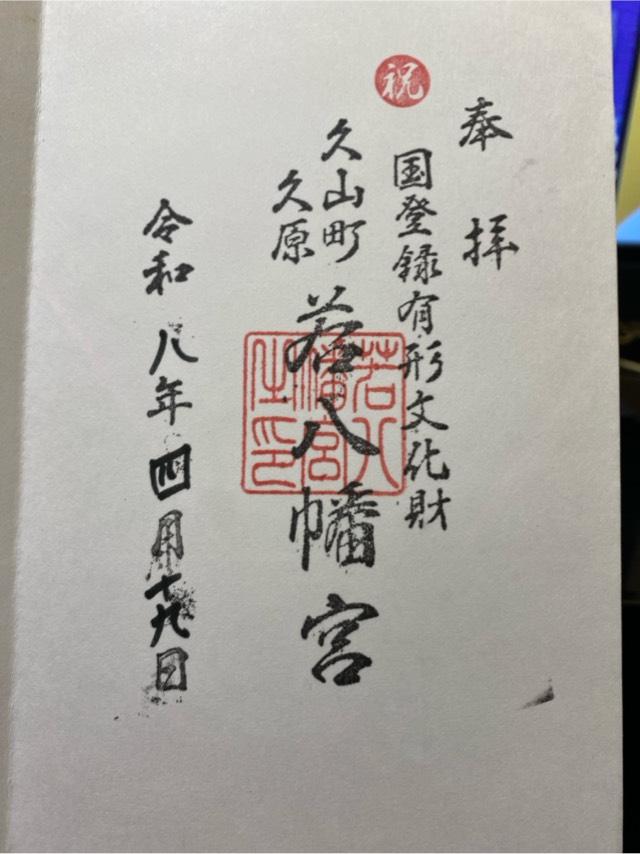 奉拝
祝
国登録有形文化財
久山町
久原
若八幡宮
若八幡宮之印
令和八年四月十九日